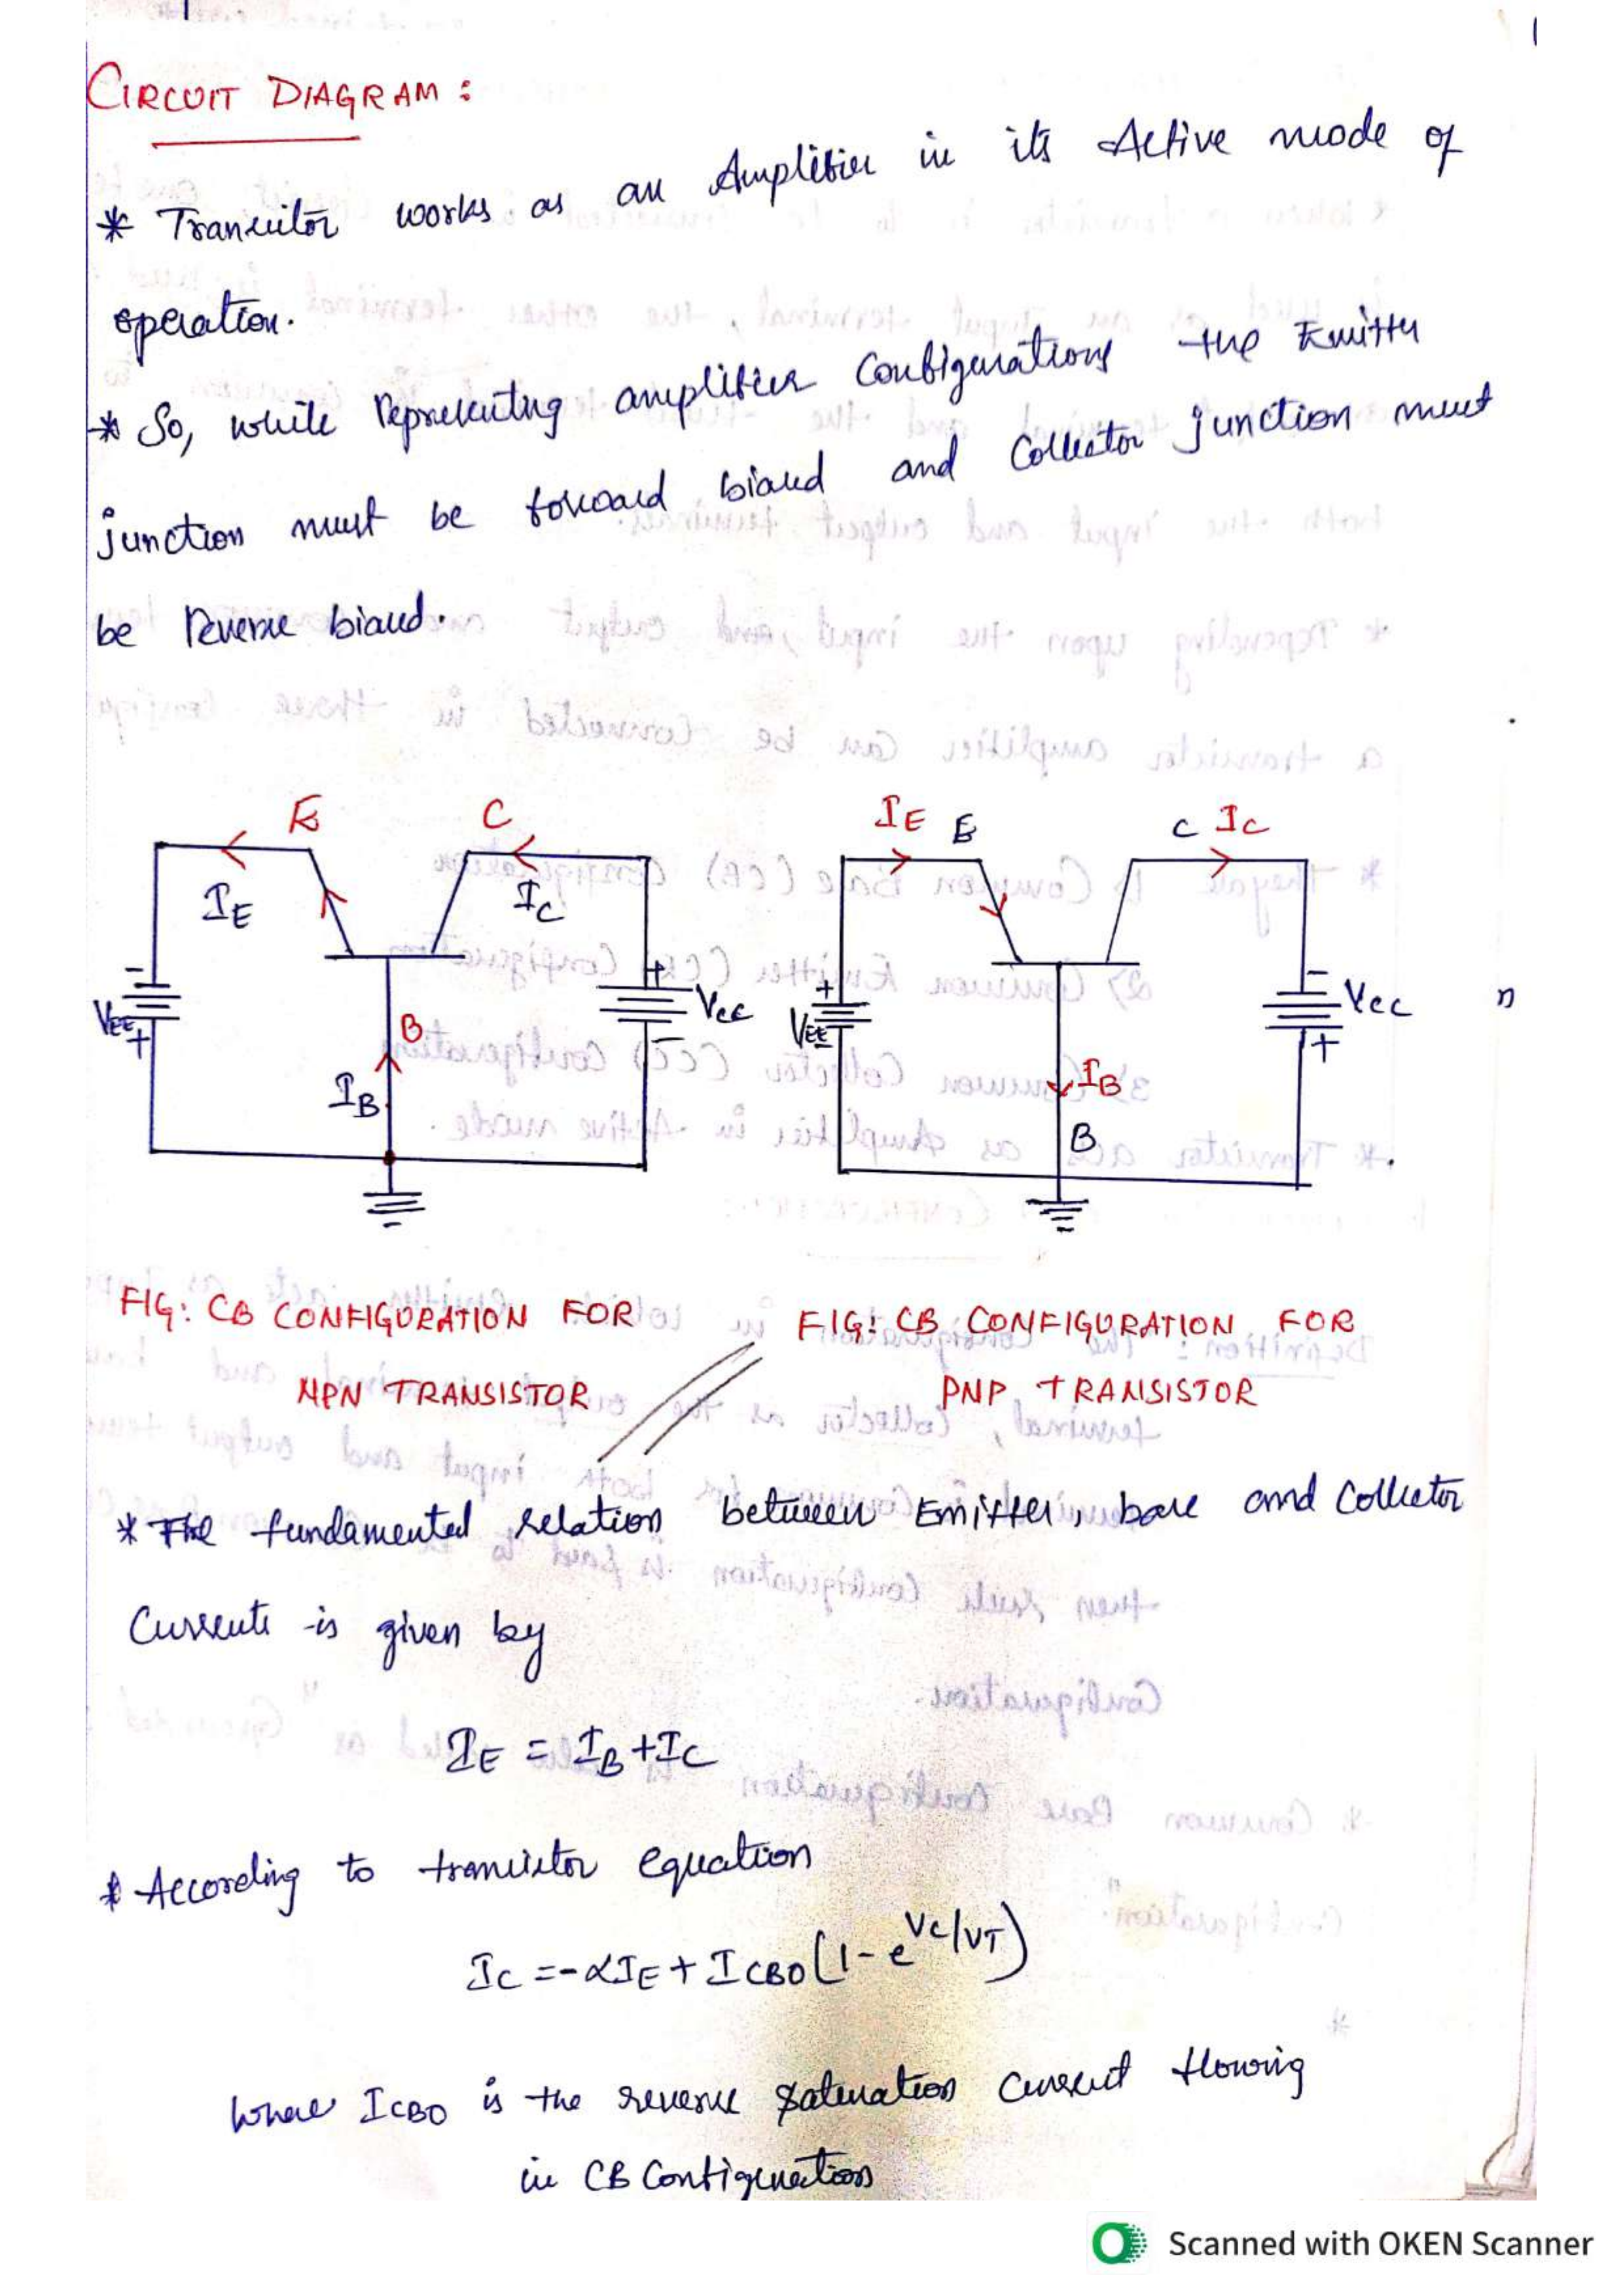 CIRCUIT DIAGRAM :
* Transistor works as an Amplifier in its Active mode of
operation.
* So, while representing amplifier Configurations the Emitter
junction must be forward biased and Collector junction must
be Reverse biased.
E C IE E C IC
IE IC
- + VCC + VEE - VCC
VEE + B - +
IB IB
B
n
FIG: CB CONFIGURATION FOR
NPN TRANSISTOR
FIG: CB CONFIGURATION FOR
PNP TRANSISTOR
* The fundamental relation between Emitter, base and Collector
Currents is given by
IE = IB + IC
* According to transistor equation
IC = -αIE + ICBO (1 - e^VC/VT)
Where ICBO is the reverse saturation current flowing
in CB Configuration
Scanned with OKEN Scanner